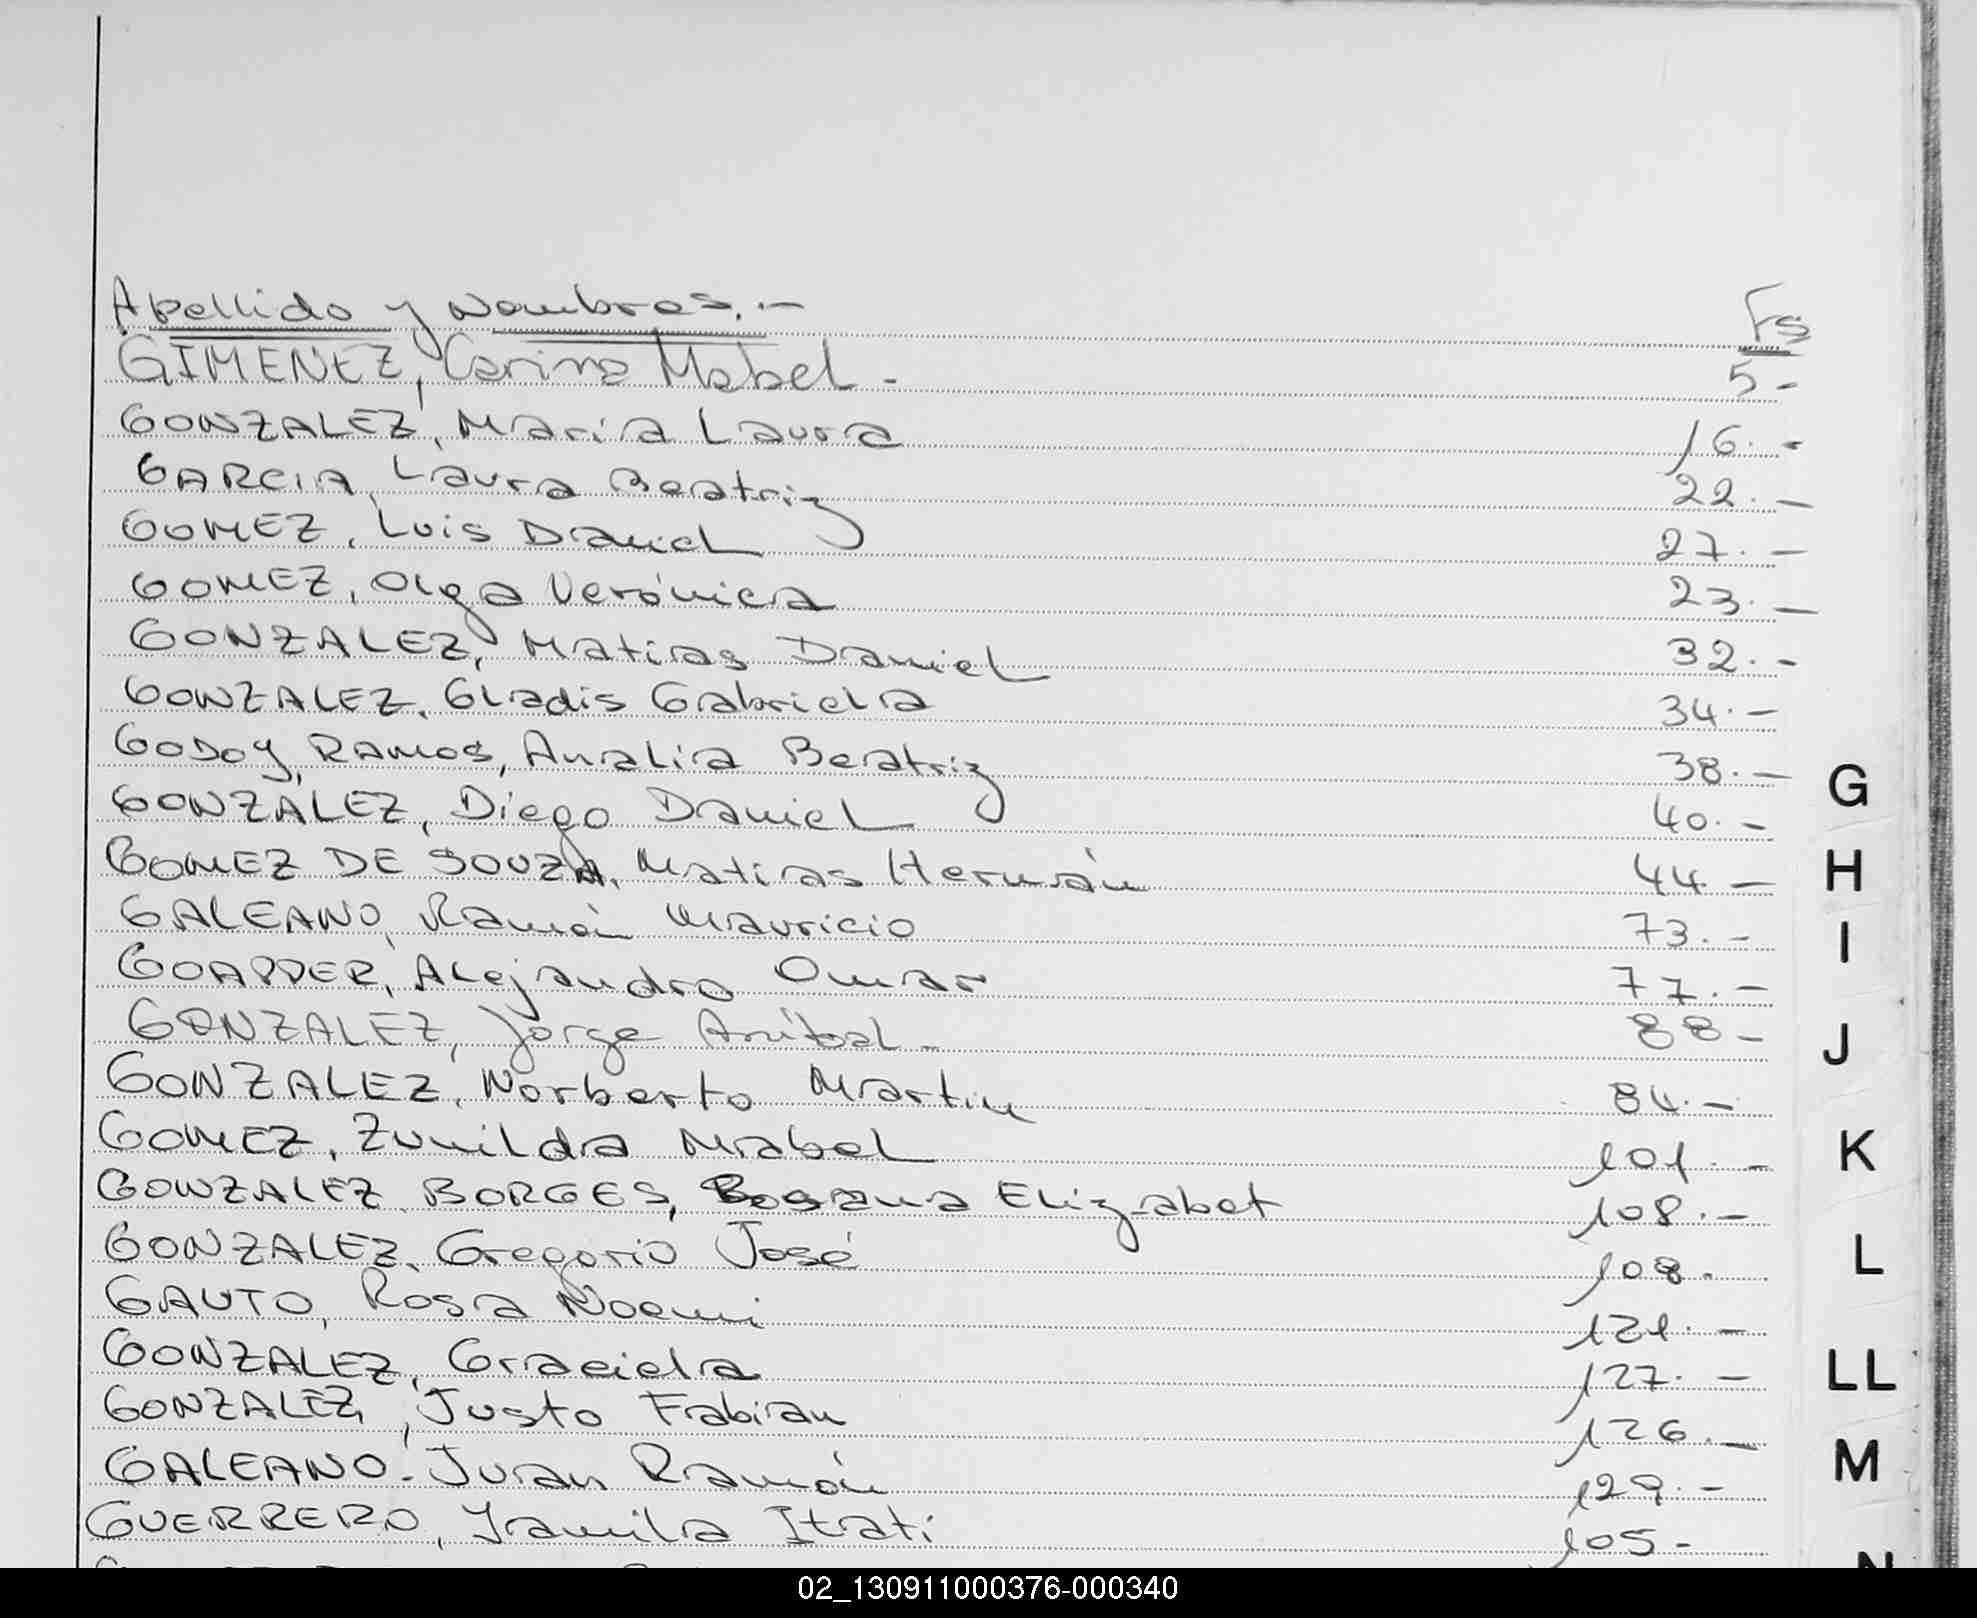 Apellido y Nombres.- Fs
GIMENEZ, Carina Mabel. - 5-
GONZALEZ, María Laura 16.-
GARCIA, Laura Beatriz 22.-
GOMEZ, Luis Daniel 27.-
GOMEZ, Olga Verónica 23.-
GONZALEZ, Matias Daniel 32.-
GONZALEZ, Gladis Gabriela 34.-
GODOY, RAMOS, Analia Beatriz 38.-
G
GONZÁLEZ, Diego Daniel 40.-
GOMEZ DE SOUZA, Matias Hernán 44-
H
GALEANO, Ramón Mauricio 73.-
I
GOAPPER, Alejandro Omar 77.-
GONZALEZ, Jorge Aníbal.- 88-
J
GONZALEZ, Norberto Martin 84.-
GOMEZ, Zunilda Mabel 101.-
K
GONZALEZ BORGES, Rosana Elizabet 108.-
GONZALEZ, Gregorio José 108.
L
GAUTO, Rosa Noemi 121.-
GONZALEZ, Graciela 127.-
LL
GONZALEZ, Justo Fabian 126.-
GALEANO. Juan Ramón 129.-
M
GUERRERO, Yamila Itati 105-
N
02_130911000376-000340